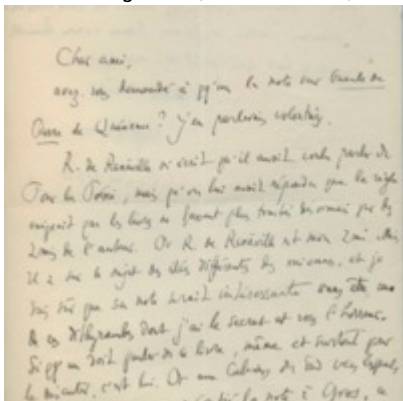 Cher ami,
avez-vous demandé à qq'un la note sur Gueule de
Pierre de Queneau ? J'en parlerais volontiers.
R. de Renéville m'écrit qu'il aurait voulu parler de
Pour la Poésie, mais qu'on lui avait répondu que la règle
exigeait que les livres ne fussent plus traités désormais par les
amis de l'auteur. Or R. de Renéville est mon ami mais
il a sur le sujet des idées différentes des miennes, et je
suis sûr que sa note serait intéressante
de ces dont j'ai le secret et vous l'horreur.
Si qq'un doit parler de ce livre, même et surtout pour
le c'est lui. Or aux Cahiers du Sud
la note à Gros, a